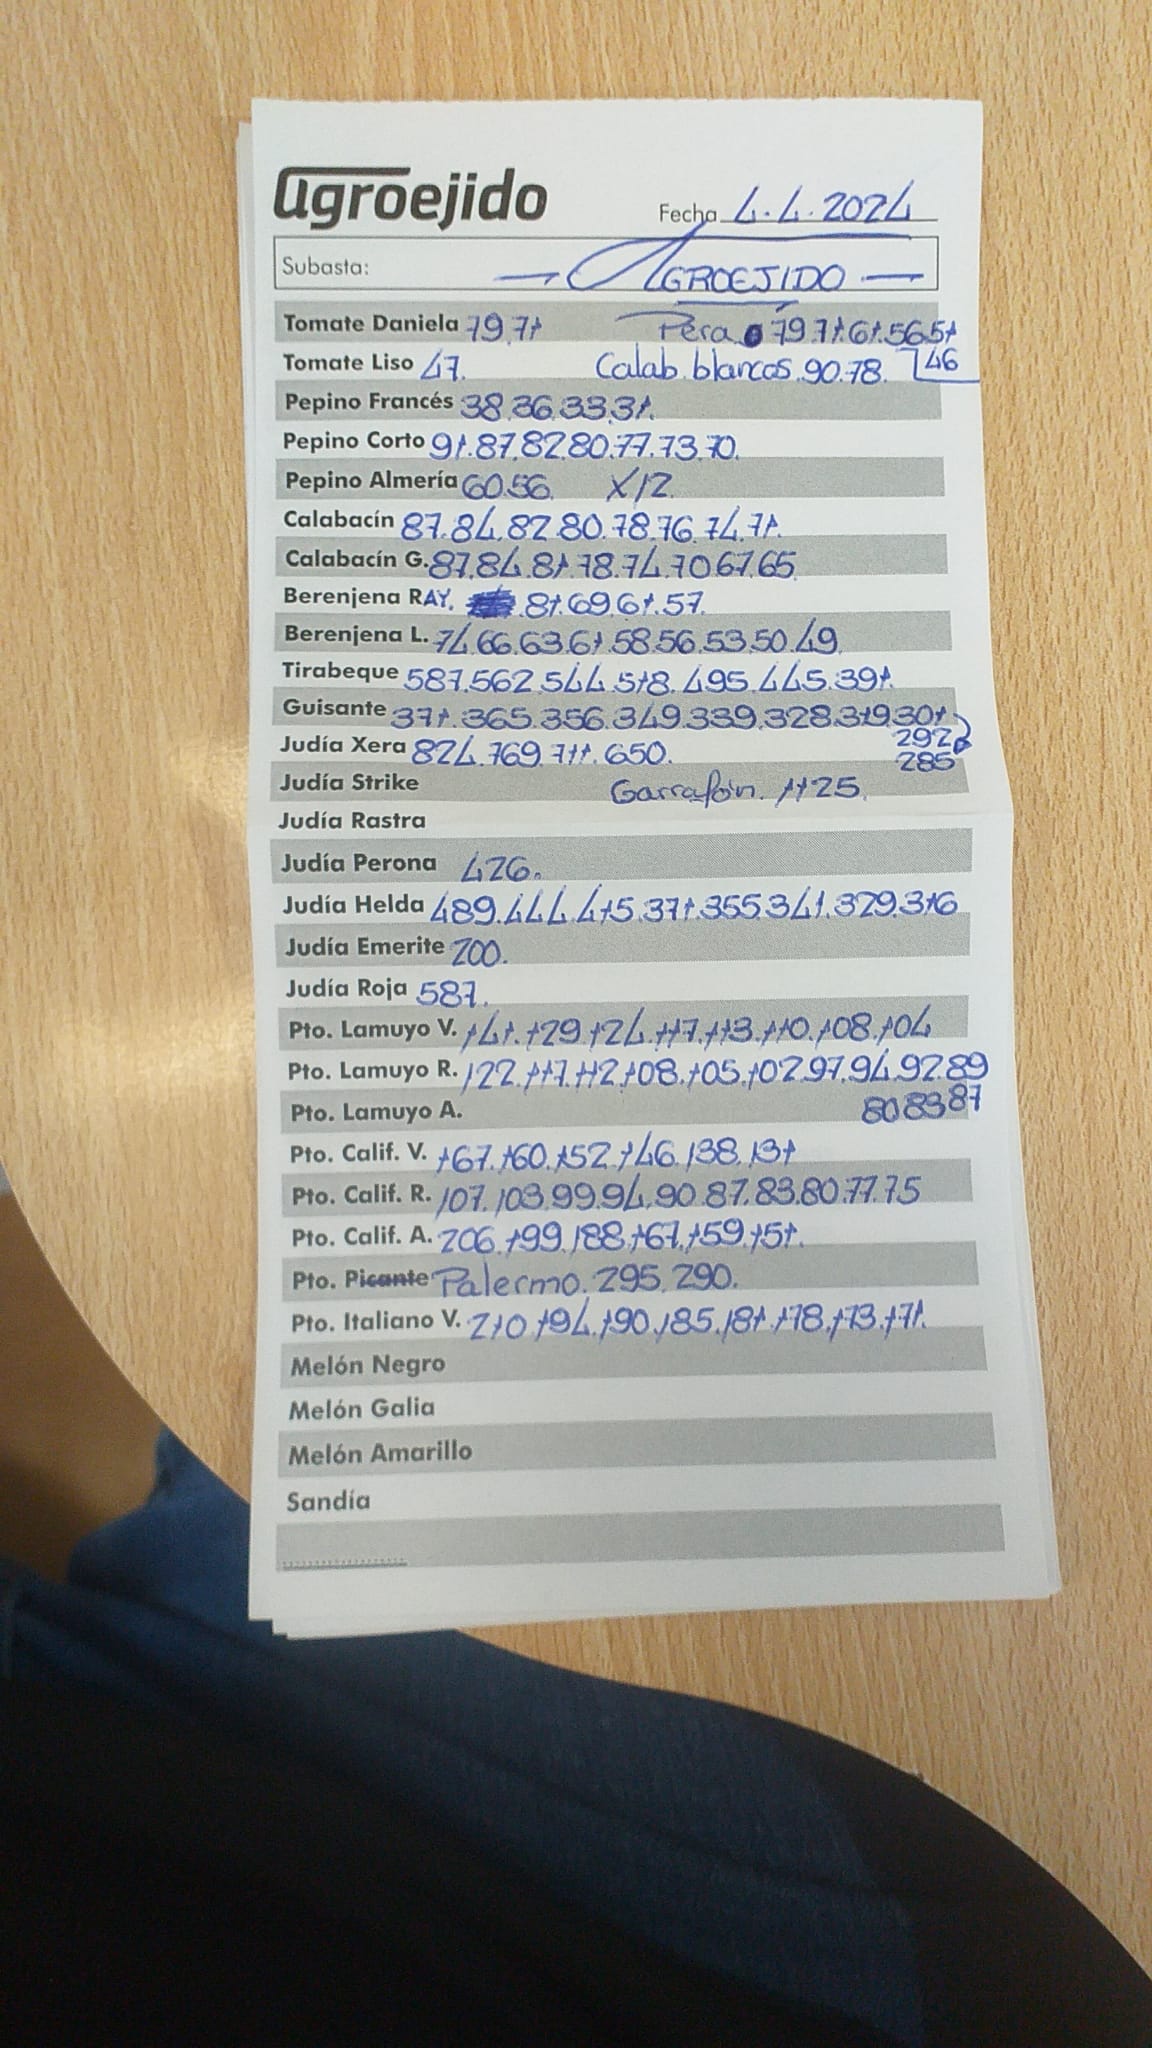 agroejido
Fecha 4.4.2024
Subasta: — AGROEJIDO —
Tomate Daniela 79.71 Pera 79.71.61.56.51
46
Tomate Liso 47. Calab. blancos. 90.78.
Pepino Francés 38.36.33.31.
Pepino Corto 91.87.82.80.77.73.70.
Pepino Almería 60.56. X/2.
Calabacín 87.84.82.80.78.76.74.71.
Calabacín G. 87.84.81.78.74.70.67.65
Berenjena RAY. 81.69.61.57.
Berenjena L. 74.66.63.61.58.56.53.50.49.
Tirabeque 587.562.544.518.495.445.391.
Guisante 371.365.356.349.339.328.319.301
292
285
Judía Xera 824.769.711.650.
Judía Strike Garrafón. 1125.
Judía Rastra
Judía Perona 426.
Judía Helda 489.444.415.371.355.341.329.316
Judía Emerite 200.
Judía Roja 587.
Pto. Lamuyo V. 141.129.124.117.113.110.108.104
Pto. Lamuyo R. 122.117.112.108.105.102.97.94.92.89
Pto. Lamuyo A. 80 83 87
Pto. Calif. V. 167.160.152.146.138.131
Pto. Calif. R. 107.103.99.94.90.87.83.80.77.75
Pto. Calif. A. 206.199.188.167.159.151.
Pto. Picante Palermo. 295.290.
Pto. Italiano V. 210.194.190.185.181.178.173.171.
Melón Negro
Melón Galia
Melón Amarillo
Sandía